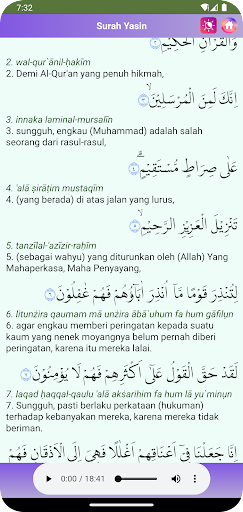 7:32
Surah Yasin
وَالْقُرْاٰنِ الْحَكِيْمِۙ
2. wal-qur`ānil-ḥakīm
2. Demi Al-Qur'an yang penuh hikmah,
اِنَّكَ لَمِنَ الْمُرْسَلِيْنَۙ ٣
3. innaka laminal-mursalīn
3. sungguh, engkau (Muhammad) adalah salah
seorang dari rasul-rasul,
عَلٰى صِرَاطٍ مُّسْتَقِيْمٍۗ ٤
4. 'alā ṣirāṭim mustaqīm
4. (yang berada) di atas jalan yang lurus,
تَنْزِيْلَ الْعَزِيْزِ الرَّحِيْمِۙ ٥
5. tanzīlal-'azīzir-raḥīm
5. (sebagai wahyu) yang diturunkan oleh (Allah) Yang
Mahaperkasa, Maha Penyayang,
لِتُنْذِرَ قَوْمًا مَّآ اُنْذِرَ اٰبَاۤؤُهُمْ فَهُمْ غٰفِلُوْنَ ٦
6. litunżira qaumam mā unżira ābā`uhum fa hum gāfilụn
6. agar engkau memberi peringatan kepada suatu
kaum yang nenek moyangnya belum pernah diberi
peringatan, karena itu mereka lalai.
لَقَدْ حَقَّ الْقَوْلُ عَلٰٓى اَكْثَرِهِمْ فَهُمْ لَا يُؤْمِنُوْنَ ٧
7. laqad ḥaqqal-qaulu 'alā akṡarihim fa hum lā yu`minụn
7. Sungguh, pasti berlaku perkataan (hukuman)
terhadap kebanyakan mereka, karena mereka tidak
beriman.
اِنَّا جَعَلْنَا فِيْٓ اَعْنَاقِهِمْ اَغْلٰلًا فَهِيَ اِلَى الْاَذْقَانِ فَهُمْ
0:00 / 18:41